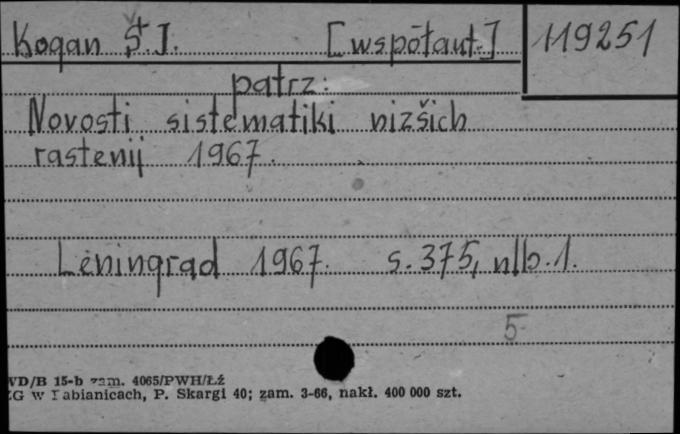 Kogan Š.I. [współaut.] 119251
patrz:
Novosti sistematiki nizšich
rastenij 1967.
Leningrad 1967. s. 375, nlb. 1.
5
WD/B 15-b zam. 4065/PWH/Łź
ZG w Pabianicach, P. Skargi 40; zam. 3-66, nakł. 400 000 szt.